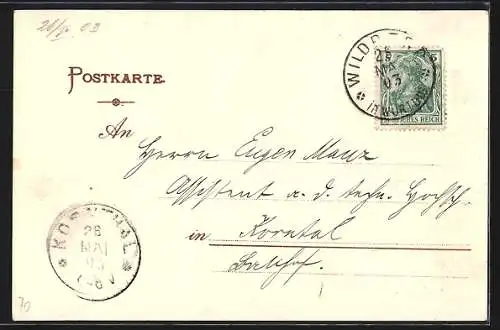 28/V. 03
POSTKARTE.
WILDBAD
28
MAI
03
IN WÜRTTBG
DEUTSCHES REICH
An
Herrn Eugen Manz
Assistent a. d. techn. Hochsch.
in Korntal
Bahnhof.
KORNTHAL
28
MAI
03
70